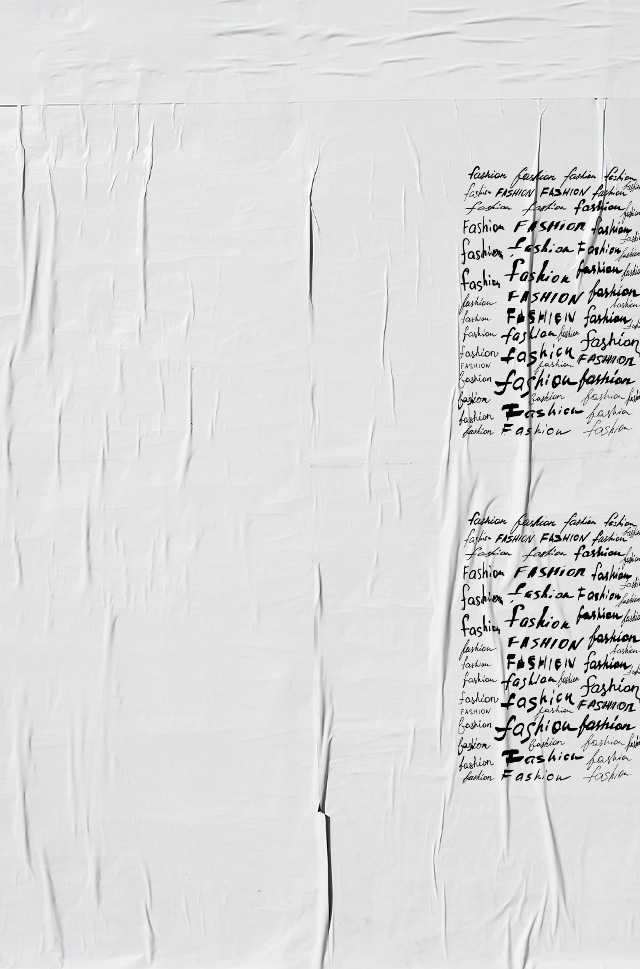 fashion fashion fashion fashion
fashion FASHION FASHION fashion fashion
fashion fashion fashion fashion
Fashion FASHION fashion
fashion fashion Fashion fashion
fashion fashion fashion fashion
fashion FASHION fashion
fashion FASHION fashion fashion
fashion fashion fashion fashion
fashion fashion FASHION
FASHION fashion
fashion fashion fashion
fashion fashion fashion fashion
fashion Fashion fashion
fashion Fashion fashion
fashion fashion fashion fashion
fashion FASHION FASHION fashion fashion
fashion fashion fashion fashion
Fashion FASHION fashion
fashion fashion Fashion fashion
fashion fashion fashion fashion
fashion FASHION fashion
fashion FASHION fashion fashion
fashion fashion fashion fashion
fashion fashion FASHION
FASHION fashion
fashion fashion fashion
fashion fashion fashion fashion
fashion Fashion fashion
fashion Fashion fashion